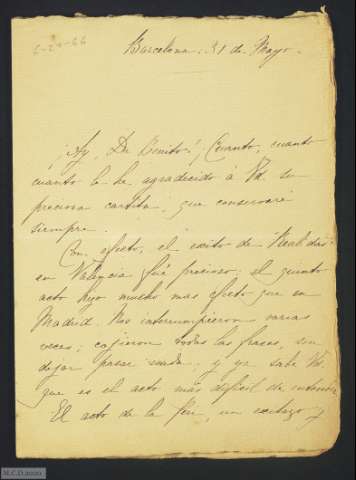 6-24-66
Barcelona: 31 de Mayo.
¡Ay, Dn Benito! ¡Cuanto, cuanto
cuanto le he agradecido á Vd. su
preciosa cartita, que conservaré
siempre.
Con efecto, el exito de Realidad
en Valencia fué precioso; el quinto
acto hizo mucho mas efecto que en
Madrid. Nos interrumpieron varias
veces; cojieron todas las frases, sin
dejar pasar nada; y ya sabe Vd.
que es el acto más dificil de entender
El acto de la fin, un exitazo y
M.C.D 2020